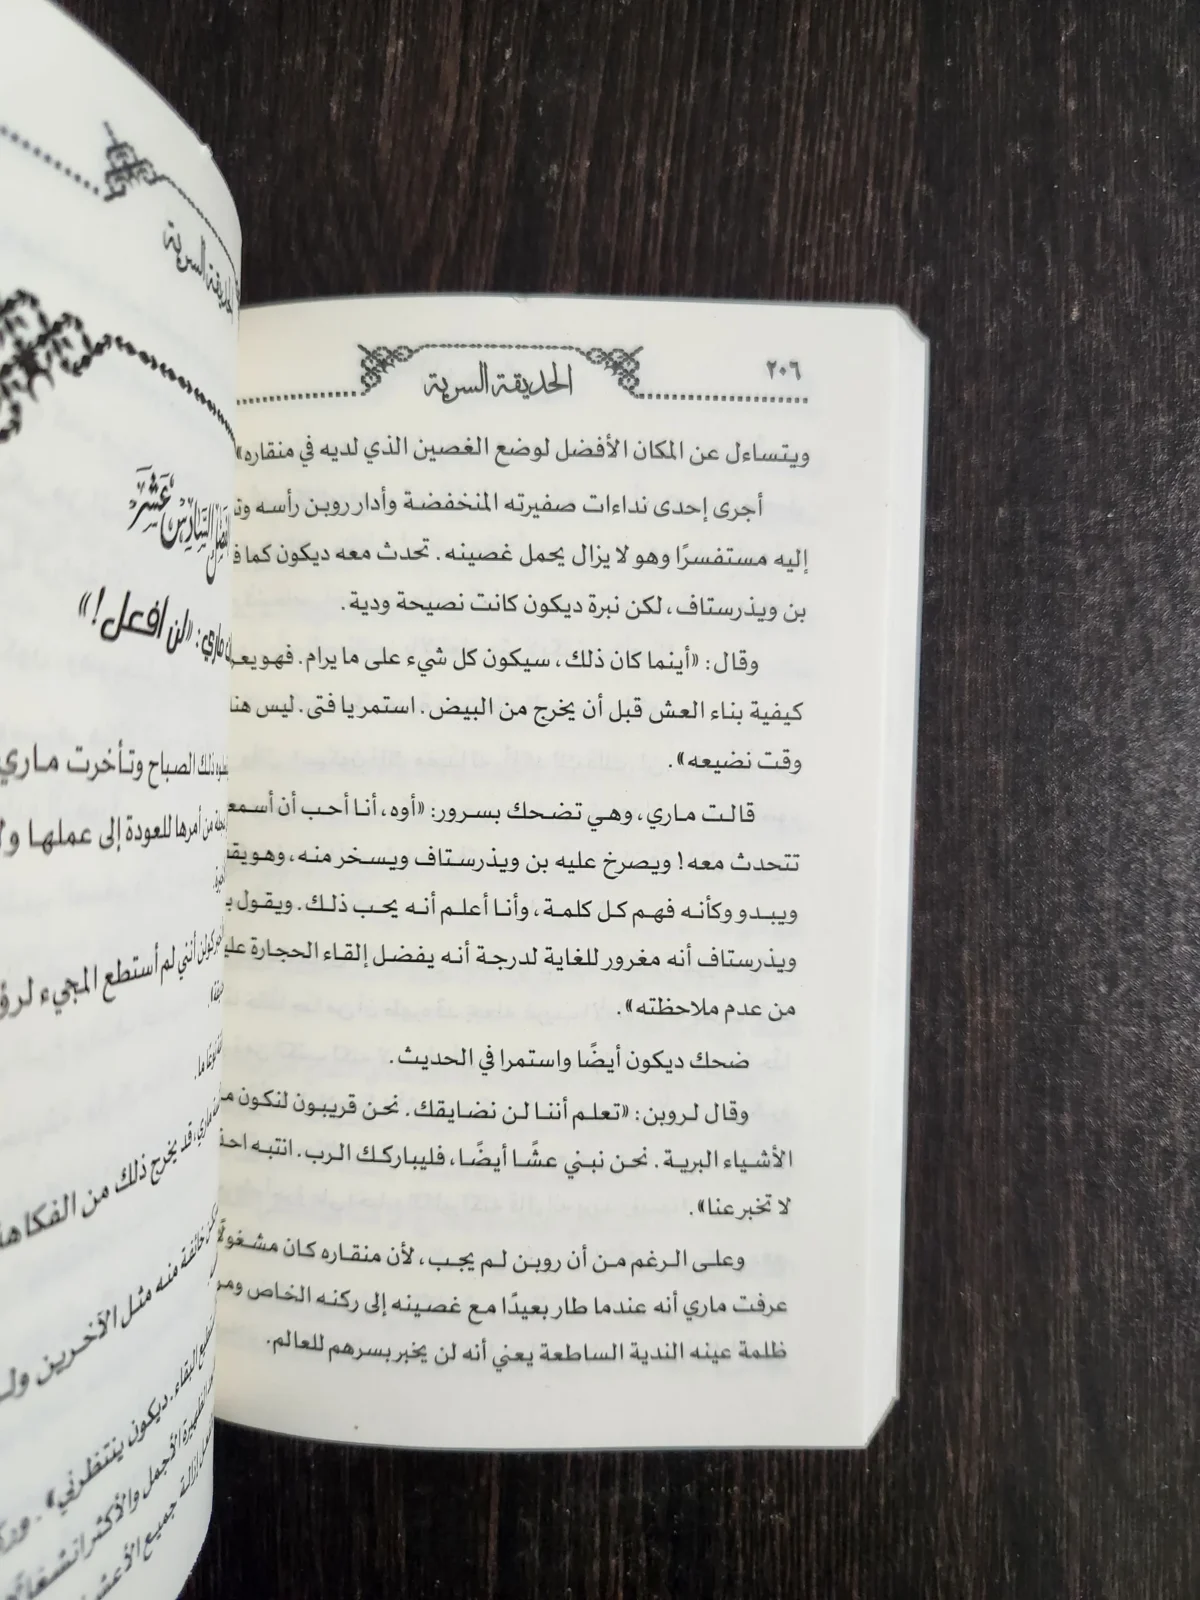 ٢٠٦
الحديقة السرية
ويتساءل عن المكان الأفضل لوضع الغصين الذي لديه في منقاره»
أجرى إحدى نداءات صفيرته المنخفضة وأدار روبن رأسه
إليه مستفسرًا وهو لا يزال يحمل غصينه. تحدث معه ديكون كما
بن ويذرستاف، لكن نبرة ديكون كانت نصيحة ودية.
وقال: «أينما كان ذلك، سيكون كل شيء على ما يرام. فهو
كيفية بناء العش قبل أن يخرج من البيض. استمر يا فتى. ليس
وقت نضيعه».
قالت ماري، وهي تضحك بسرور: «أوه، أنا أحب أن
تتحدث معه! ويصرخ عليه بن ويذرستاف ويسخر منه،
ويبدو وكأنه فهم كل كلمة، وأنا أعلم أنه يحب ذلك. ويقول
ويذرستاف أنه مغرور للغاية لدرجة أنه يفضل إلقاء الحجارة
من عدم ملاحظته».
ضحك ديكون أيضًا واستمرا في الحديث.
وقال لروبن: «تعلم أننا لن نضايقك. نحن قريبون لنكون
الأشياء البرية. نحن نبني عشًا أيضًا، فليباركك الرب. انتبه
لا تخبر عنا».
وعلى الرغم من أن روبن لم يجب، لأن منقاره كان مشغولًا
عرفت ماري أنه عندما طار بعيدًا مع غصينه إلى ركنه الخاص
ظلمة عينه الندية الساطعة يعني أنه لن يخبر بسرهم للعالم.
الحديقة السرية
الفصل السادس عشر
ماري: «لن افعل!»
ذلك الصباح وتأخرت ماري
من أمرها للعودة إلى عملها
أنني لم أستطع المجيء
قد يخرج ذلك من الفكاهة
خائفة منه مثل الآخرين
البقاء. ديكون ينتظرني».
الظهيرة الأجمل والأكثر انشغالًا
إزالة جميع